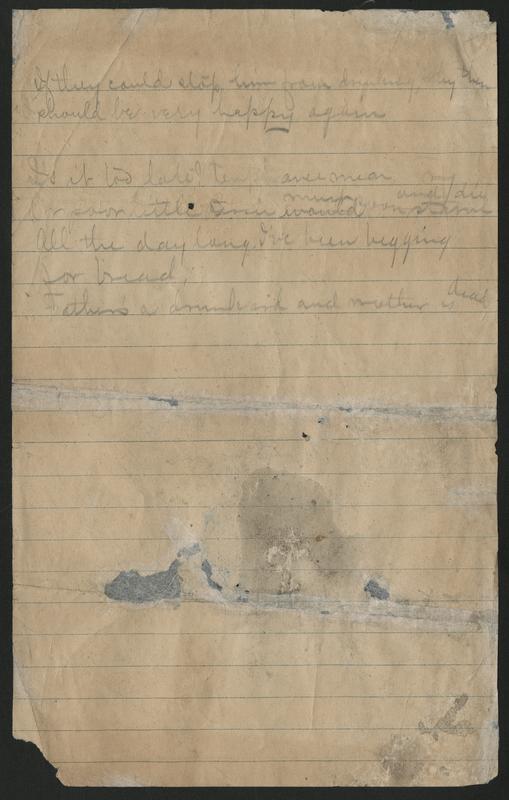 If they could stop him from drinking, why then
should be very happy again
Is it too late? Temperance men
Or soon little must and die
All the day long I've been begging
for bread,
Father's a drunkard and mother is dead